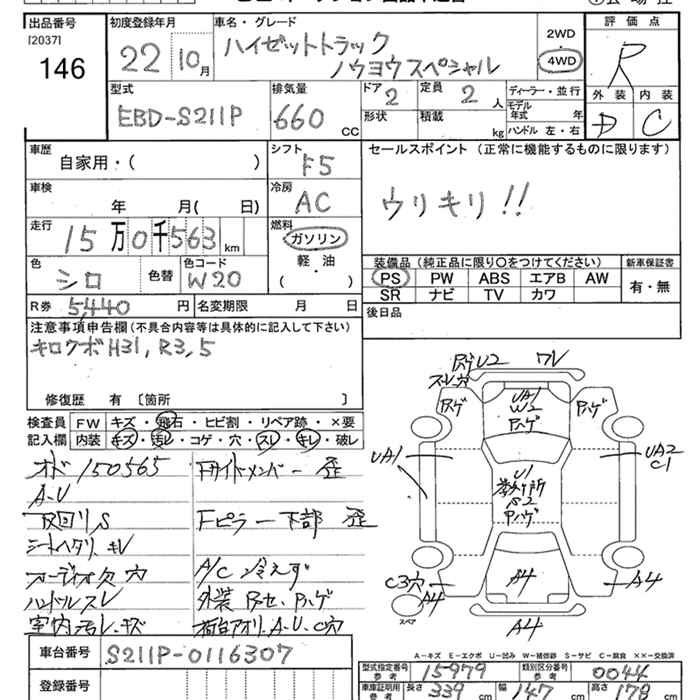 出品番号 初度登録年月 車名・グレード 評価点
[2037] 146
22 10月
ハイゼットトラック
ノウヨウスペシャル
2WD
4WD
R
型式 排気量 ドア 定員 ディーラー・並行 外装 内装
EBD-S211P 660 CC 2 2人
形状 積載 kg モデル年式 年
ハンドル 左・右
D C
車歴 シフト セールスポイント(正常に機能するものに限ります)
自家用・( ) F5
車検 冷房
年 月( 日) AC
ウリキリ!!
走行 燃料
15万0千563km ガソリン
軽・油
( )
色 色替 色コード
シロ W20
装備品(純正品に限り○をつけてください) 新車保証書
PS PW ABS エアB AW 有・無
SR ナビ TV カワ
R券 5,440円 名変期限 月 日
後日品
注意事項申告欄(不具合内容等は具体的に記入して下さい)
キロクボH31,R3,5
修復歴 有 [箇所 ]
検査員 FW キズ・飛石・ヒビ割・リペア跡・×要
記入欄 内装 キズ・汚レ・コゲ・穴・スレ・キレ・破レ
オド150565
A-U
下回りS
シートヘタリ、キレ
オーディオ欠 穴
ハンドルスレ
室内汚レ・キズ
Fサイドメンバー歪
Fピラー下部 歪
A/C 冷えず
外装 Pハゲ
荷台アオリ、A.U.C穴
U2 ワレ
スレ穴
Pハゲ
UA1
W2
Pハゲ
Pハゲ
UA1
UA2
C1
U1
S2
Pハゲ
C3穴
A4
スペア
A4
A4
A4
A-キズ E-エクボ U-凹み W-補修跡 S-サビ C-腐食 ××-交換済
車台番号 S211P-0116307
型式指定番号 参考 15979 類別区分番号 参考 0044
登録番号
車庫証明用 参考 長さ 339 cm 幅 147 cm 高さ 178 cm